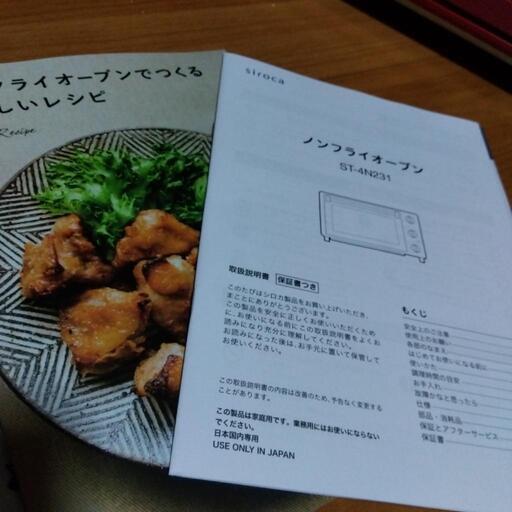 フライオーブンでつくる
しいレシピ
Recipe
siroca
ノンフライオーブン
ST-4N231
取扱説明書 保証書つき
このたびはシロカ製品をお買い上げいただき、
まことにありがとうございます。
この製品を安全に正しくお使いいただくため
に、お使いになる前にこの取扱説明書をよくお
読みになり充分に理解してください。
お読みになった後は、お手元に置いて保管して
お使いください。
この取扱説明書の内容は改善のため、予告なく変更する
ことがあります。
この製品は家庭用です。業務用にはお使いにならない
でください。
日本国内専用
USE ONLY IN JAPAN
もくじ
安全上のご注意
使用上のお願い
各部のなまえ
はじめてお使いになる前に
使いかた
調理時間の目安
お手入れ
故障かなと思ったら
仕様
部品・消耗品
保証とアフターサービス
保証書